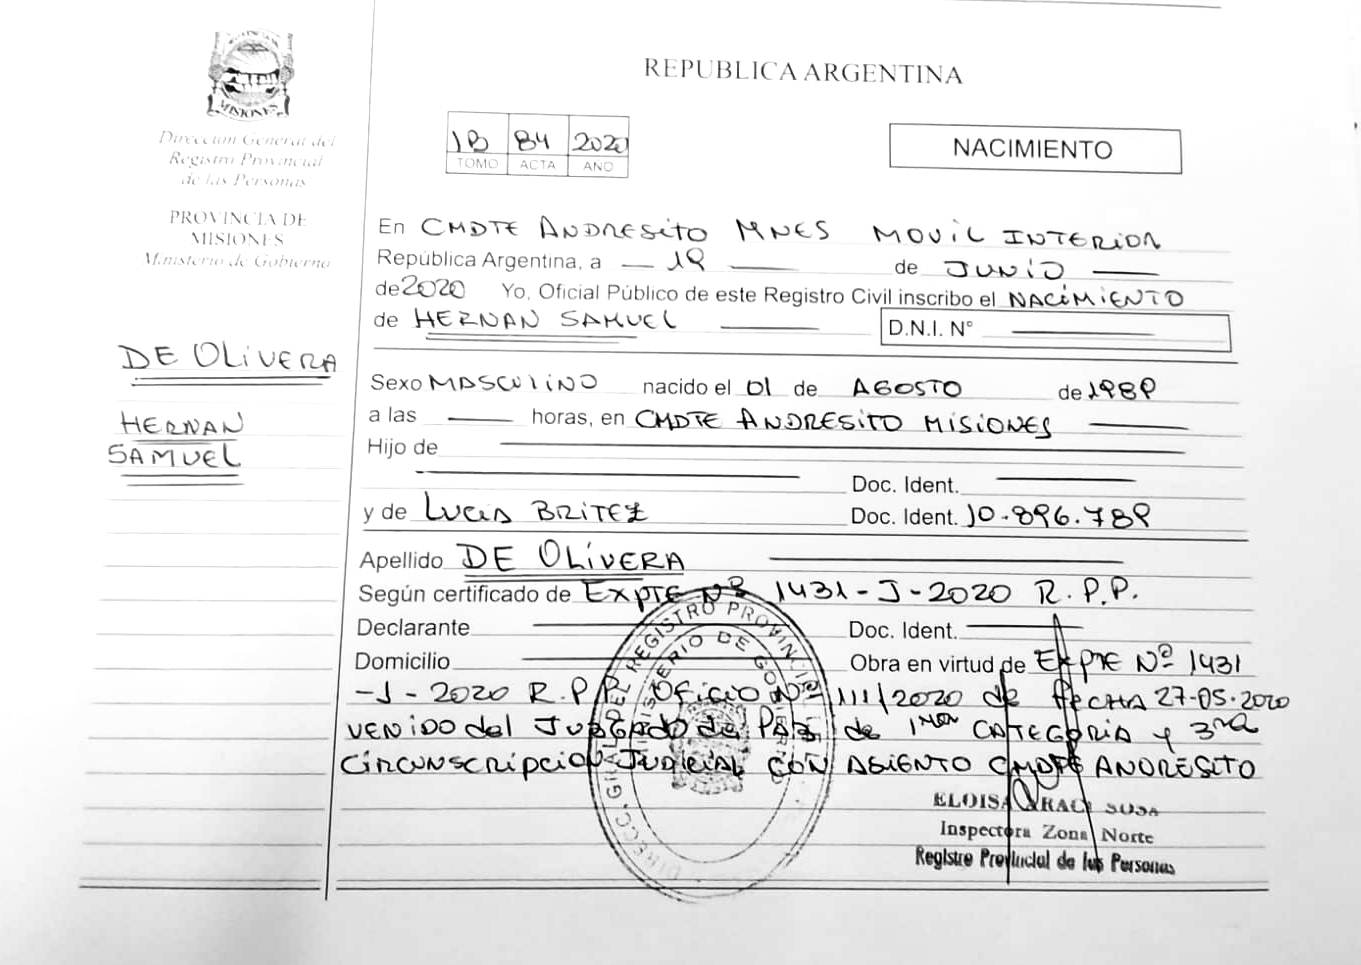 MISIONES
Direccion General del
Registro Provincial
de las Personas
PROVINCIA DE
MISIONES
Ministerio de Gobierno
DE OLIVERA
HERNAN
SAMUEL
REPUBLICA ARGENTINA
1B 84 2020
TOMO ACTA AÑO
NACIMIENTO
En CMDTE ANDRESITO MNES MOVIL INTERIOR
República Argentina, a 19 de JUNIO
de 2020 Yo, Oficial Público de este Registro Civil inscribo el NACIMIENTO
de HERNAN SAMUEL D.N.I. N°
Sexo MASCULINO nacido el 01 de AGOSTO de 1989
a las horas, en CMDTE ANDRESITO MISIONES
Hijo de
Doc. Ident.
y de LUCIA BRITEZ Doc. Ident. 10.896.789
Apellido DE OLIVERA
Según certificado de EXPTE Nº 1431-J-2020 R.P.P.
Declarante Doc. Ident.
Domicilio Obra en virtud de EXPTE Nº 1431
-J-2020 R.P.P. OFICIO Nº 111/2020 de FECHA 27-05-2020
VENIDO del JUZGADO de PAZ de 1RA CATEGORIA y 3RA
CIRCUNSCRIPCION JUDICIAL CON ASIENTO CMDTE ANDRESITO
DIRECC. GRAL. DEL REGISTRO PROVINCIAL
MINISTERIO DE GOBIERNO
ELOISA ARACI SOSA
Inspectora Zona Norte
Registro Provincial de las Personas